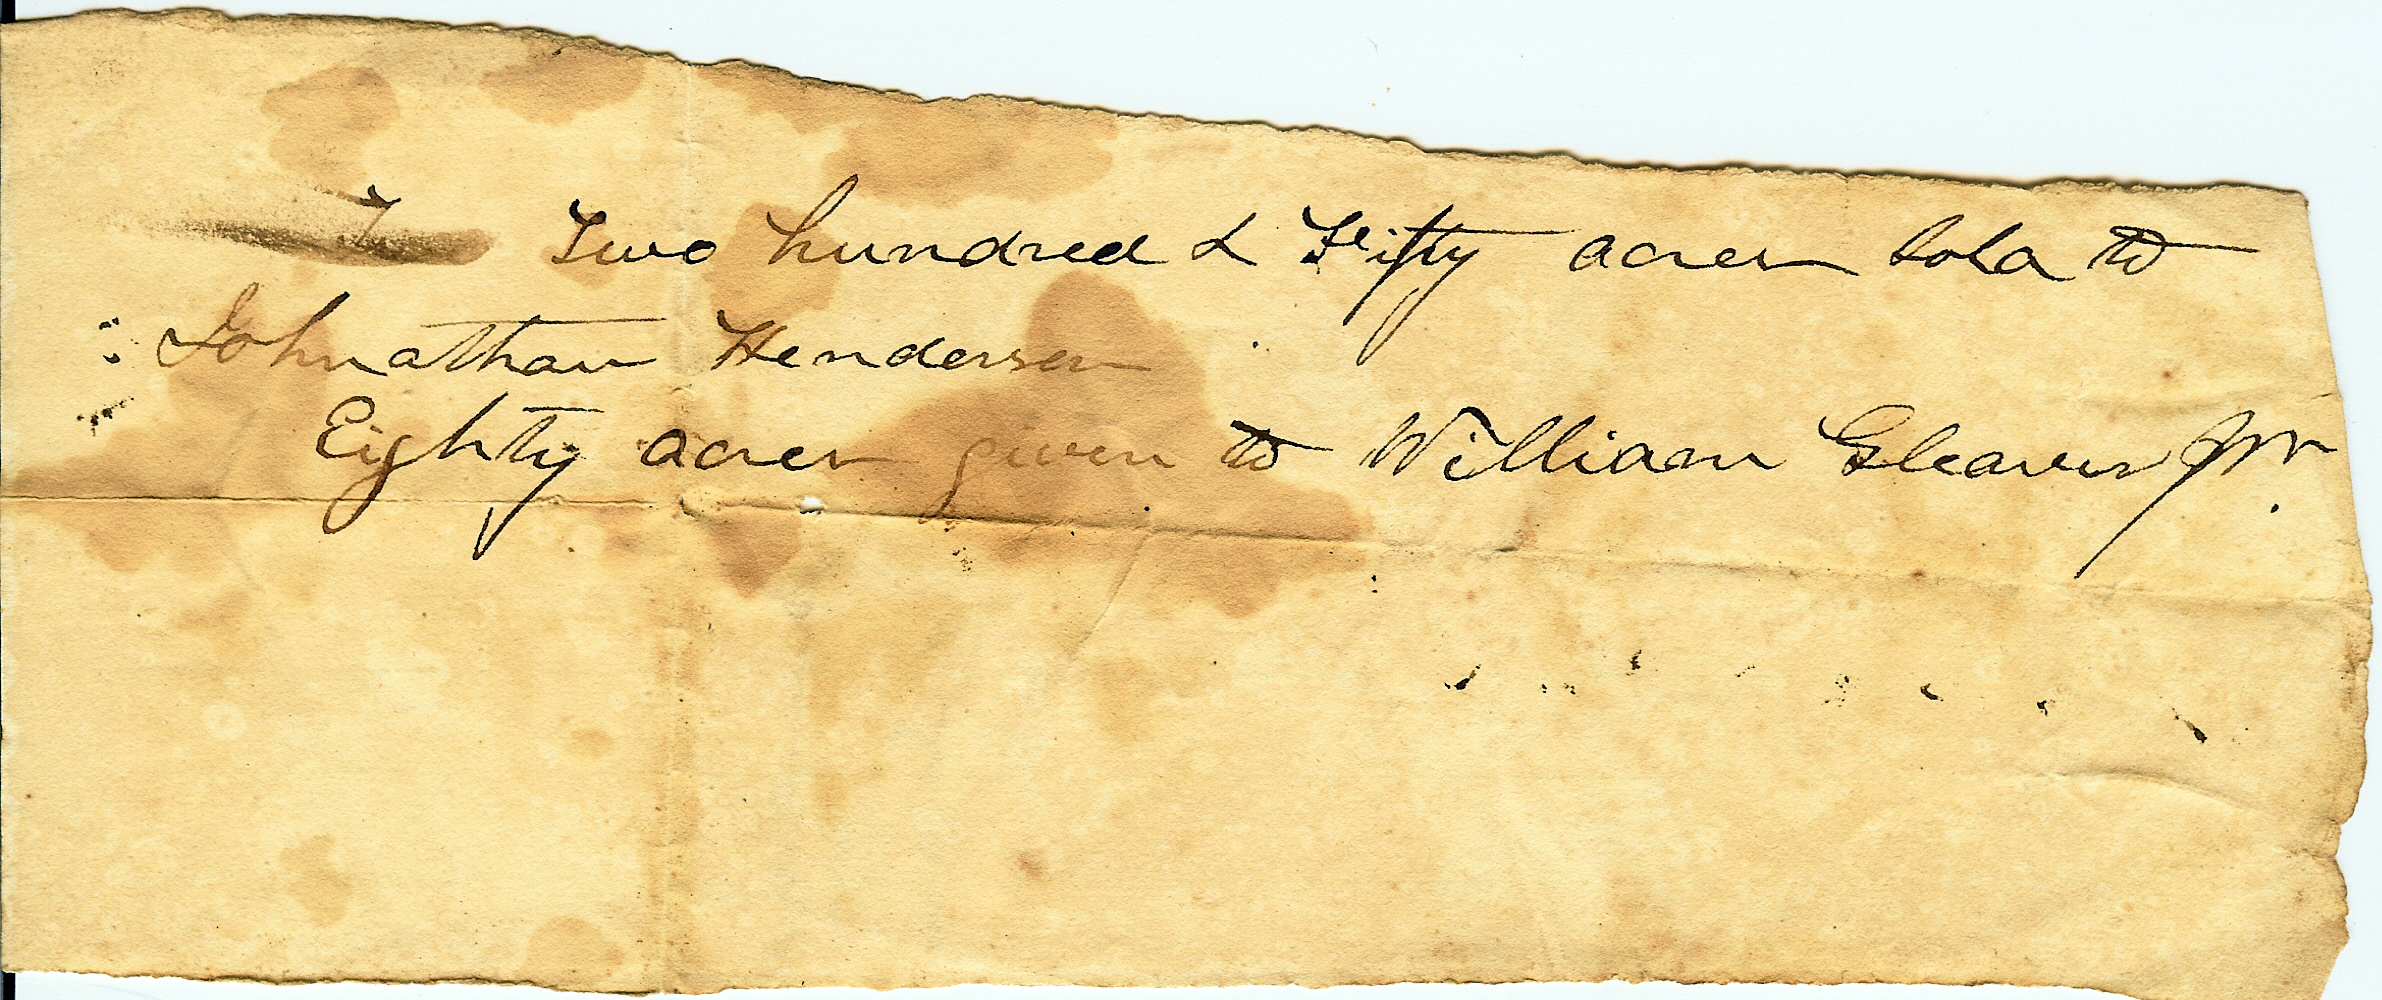 Two hundred & Fifty acres sold to
Johnathan Henderson
Eighty acres given to William Gleaves Jnr.